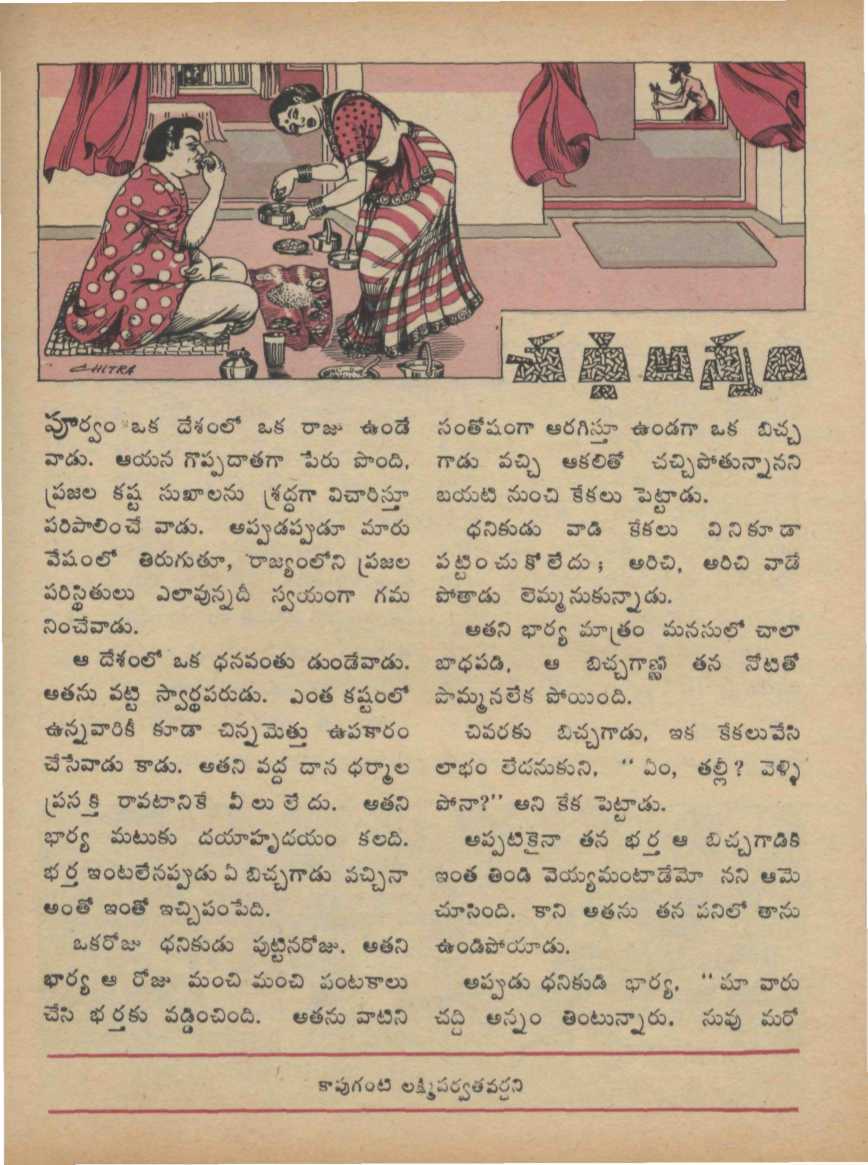 CHITRA
చద్ది అన్నం
పూర్వం ఒక దేశంలో ఒక రాజు ఉండే
వాడు. ఆయన గొప్పదాతగా పేరు పొంది,
ప్రజల కష్ట సుఖాలను శ్రద్ధగా విచారిస్తూ
పరిపాలించే వాడు. అప్పుడప్పుడూ మారు
వేషంలో తిరుగుతూ, రాజ్యంలోని ప్రజల
పరిస్థితులు ఎలావున్నదీ స్వయంగా గమ
నించేవాడు.
ఆ దేశంలో ఒక ధనవంతు డుండేవాడు.
అతను వట్టి స్వార్థపరుడు. ఎంత కష్టంలో
ఉన్నవారికీ కూడా చిన్నమెత్తు ఉపకారం
చేసేవాడు కాడు. అతని వద్ద దాన ధర్మాల
ప్రసక్తి రావటానికే వీలు లేదు. అతని
భార్య మటుకు దయాహృదయం కలది.
భర్త ఇంటలేనప్పుడు ఏ బిచ్చగాడు వచ్చినా
అంతో ఇంతో ఇచ్చిపంపేది.
ఒకరోజు ధనికుడు పుట్టినరోజు. అతని
భార్య ఆ రోజు మంచి మంచి పంటకాలు
చేసి భర్తకు వడ్డించింది. అతను వాటిని
సంతోషంగా ఆరగిస్తూ ఉండగా ఒక బిచ్చ
గాడు వచ్చి ఆకలితో చచ్చిపోతున్నానని
బయటి నుంచి కేకలు పెట్టాడు.
ధనికుడు వాడి కేకలు వినికూడా
పట్టించుకోలేదు; అరిచి, అరిచి వాడే
పోతాడు లెమ్మనుకున్నాడు.
అతని భార్య మాత్రం మనసులో చాలా
బాధపడి, ఆ బిచ్చగాణ్ణి తన నోటితో
పొమ్మనలేక పోయింది.
చివరకు బిచ్చగాడు, ఇక కేకలువేసి
లాభం లేదనుకుని, "ఏం, తల్లీ? వెళ్ళి
పోనా?" అని కేక పెట్టాడు.
అప్పటికైనా తన భర్త ఆ బిచ్చగాడికి
ఇంత తిండి వెయ్యమంటాడేమో నని ఆమె
చూసింది. కాని అతను తన పనిలో తాను
ఉండిపోయాడు.
అప్పుడు ధనికుడి భార్య, "మా వారు
చద్ది అన్నం తింటున్నారు. నువు మరో
కాపుగంటి లక్ష్మిపర్వతవర్ధని